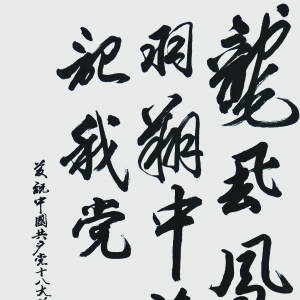 龍飛鳳
羽翔中
記我党
慶祝中國共产党十八大